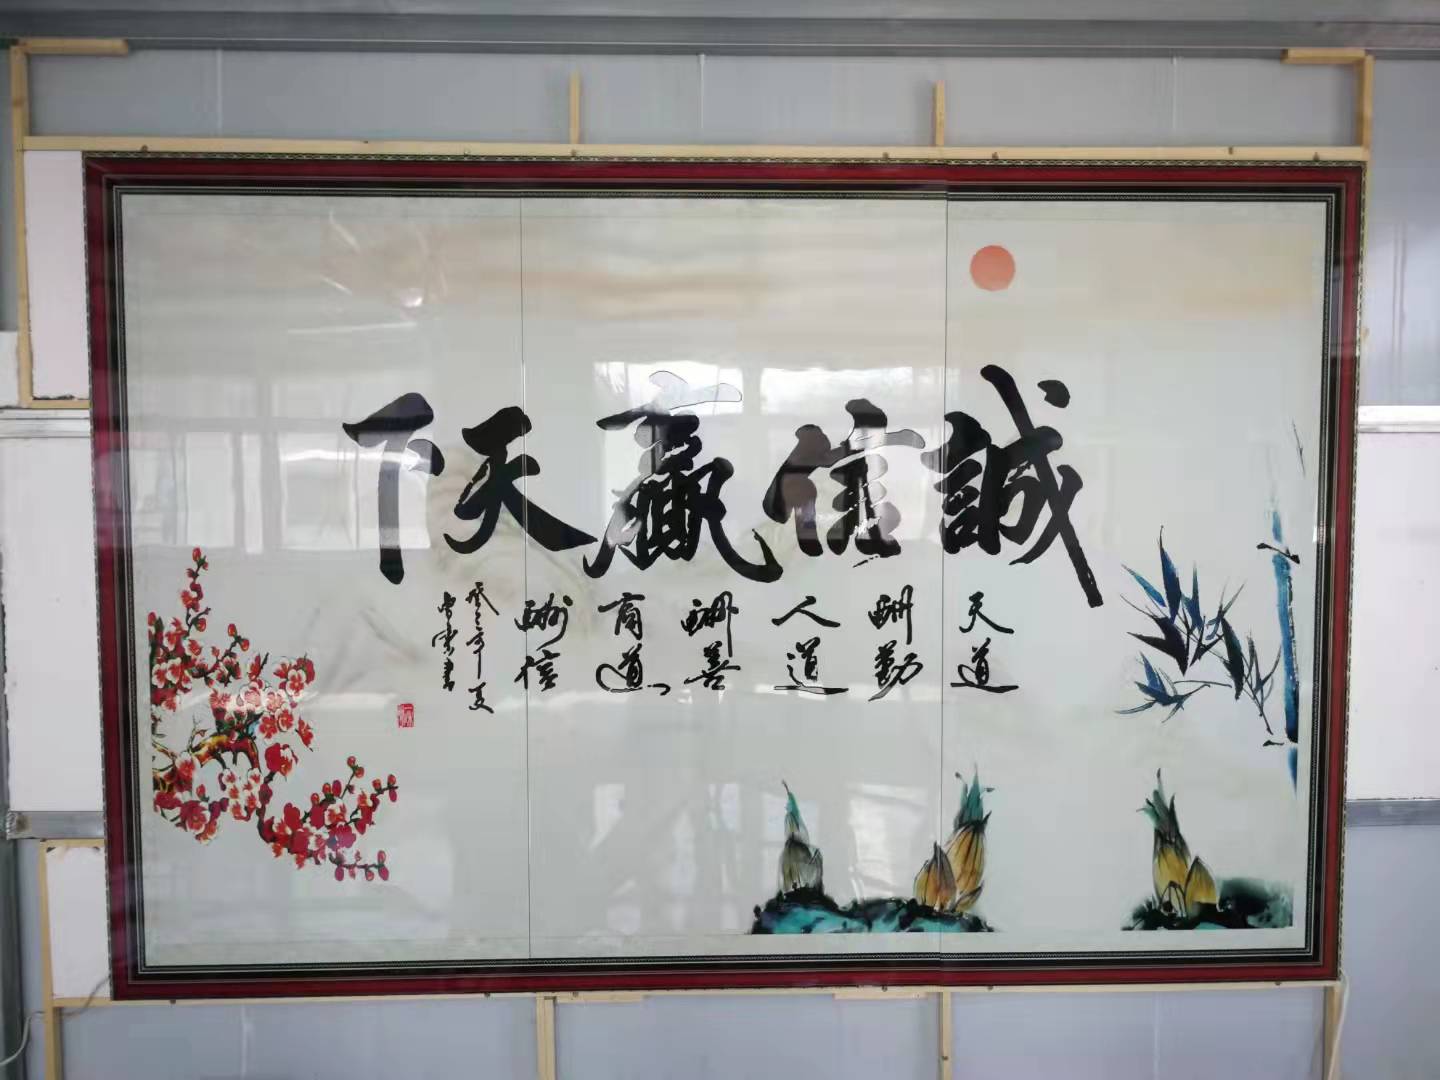 誠信贏天下
天道
酬勤
人道
酬善
商道
酬信
年夏
書